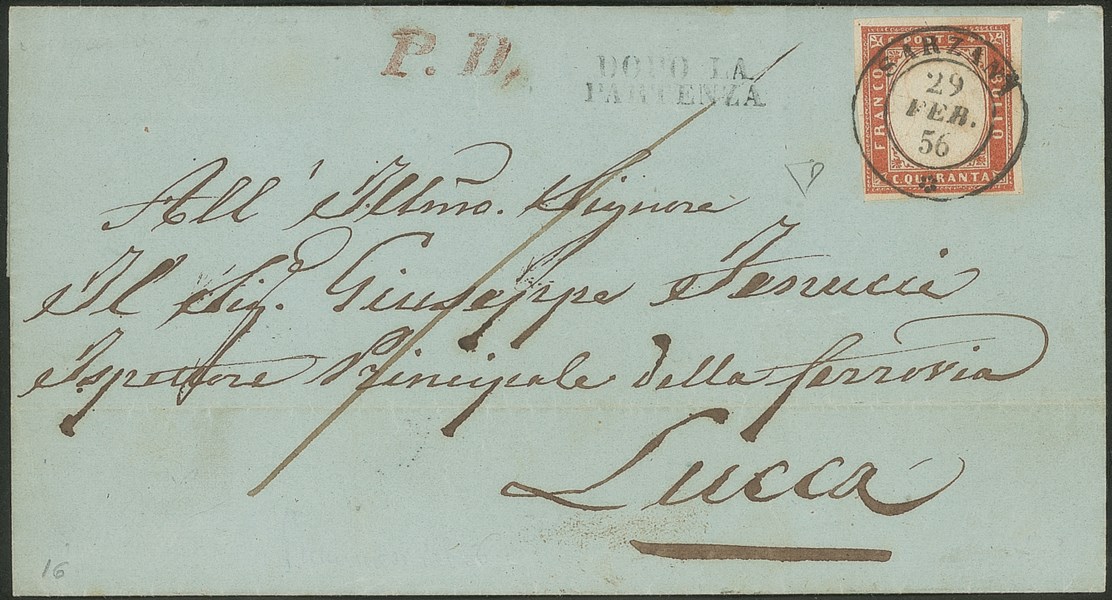 P. D.
DOPO LA
PARTENZA
C. POSTE
FRANCO
BOLLO
C. QUARANTA
SARZANA
29
FEB.
56
All' Illmo. Signore
Il Sig. Giuseppe
Ispettore Principale della ferrovia
Lucca
16